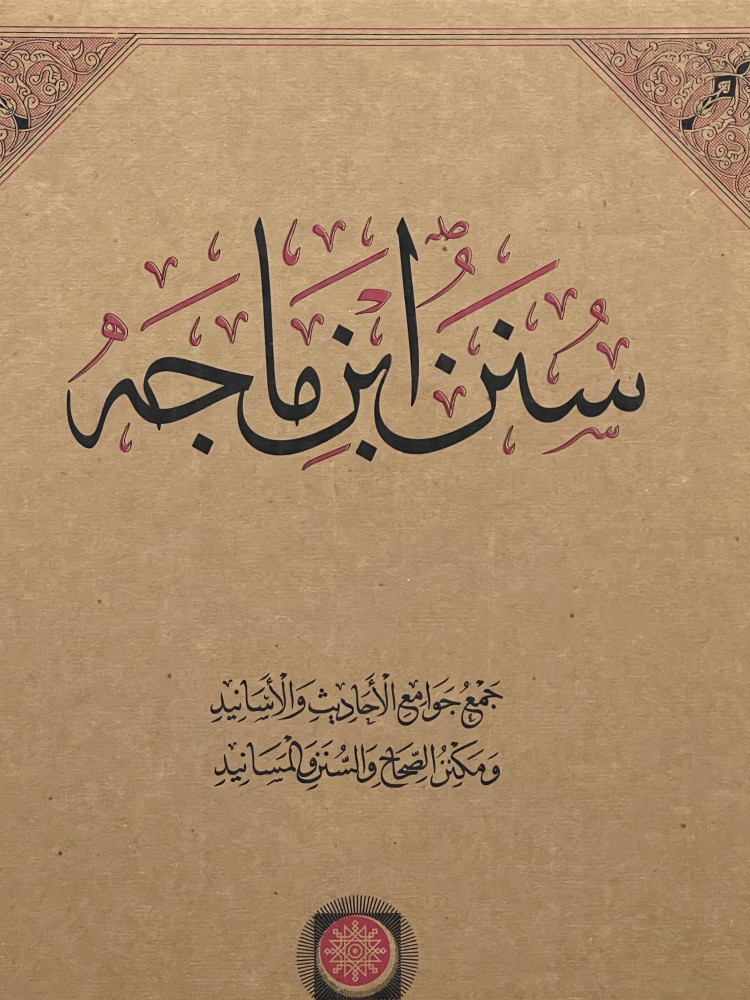 سُنَنُ ابْنِ مَاجَهْ
جَمْعُ جَوَامِعِ الْأَحَادِيثِ وَالْأَسَانِيدِ
وَمَكْنَزُ الصِّحَاحِ وَالسُّنَنِ وَالْمَسَانِيدِ